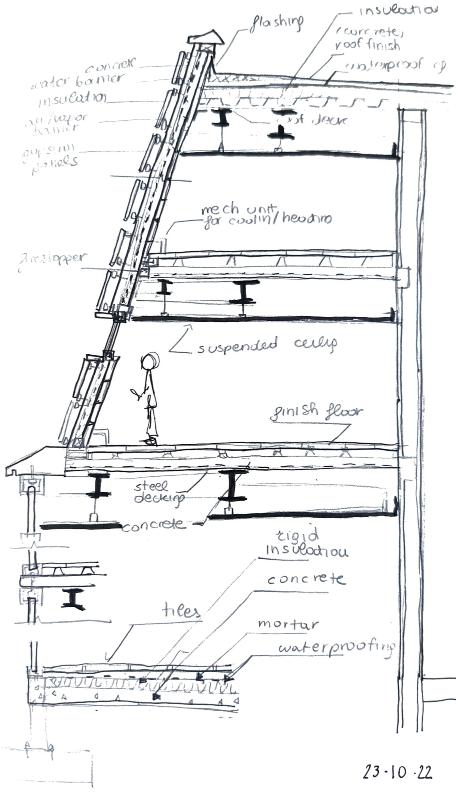 flashing
insulation
concrete,
roof finish
waterproof
concrete
water barrier
insulation
air/vapor
barrier
gypsum
panels
roof deck
mech unit
for coolin/heading
firestopper
suspended ceiling
finish floor
steel
decking
concrete
rigid
insulation
concrete
tiles
mortar
waterproofing
23-10-22